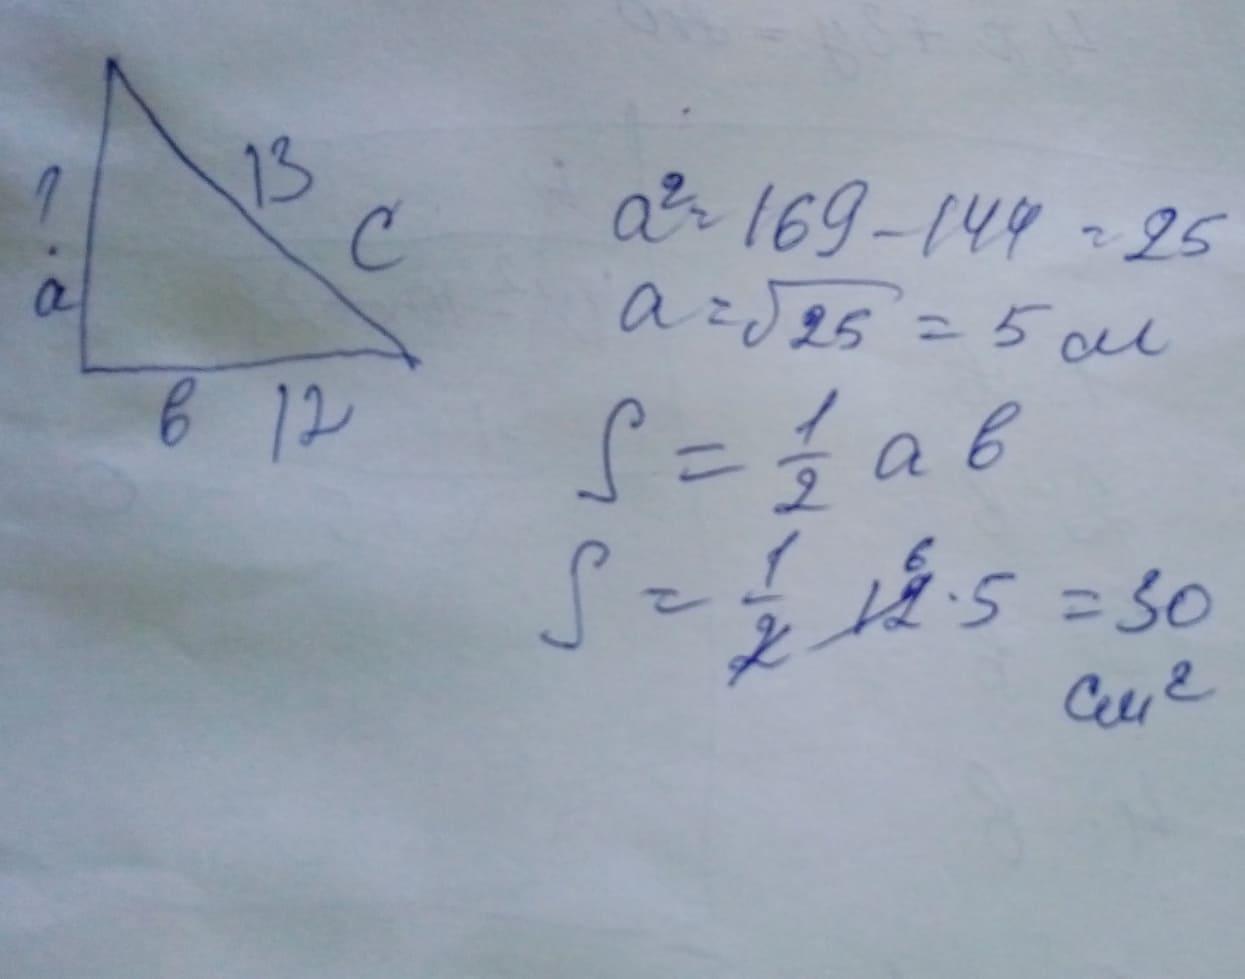 13
?
C
a
в 12
a² = 169 - 144 = 25
a = √25 = 5 см
S = 1/2 a в
S = 1/2 12 6 · 5 = 30
см²